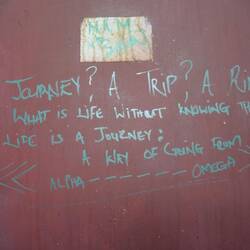 JOURNEY? A TRIP? A RI
WHAT IS LIFE WITHOUT KNOWING TH
LIFE IS A JOURNEY:
A WAY OF GOING FROM
ALPHA - - - - - - - OMEGA